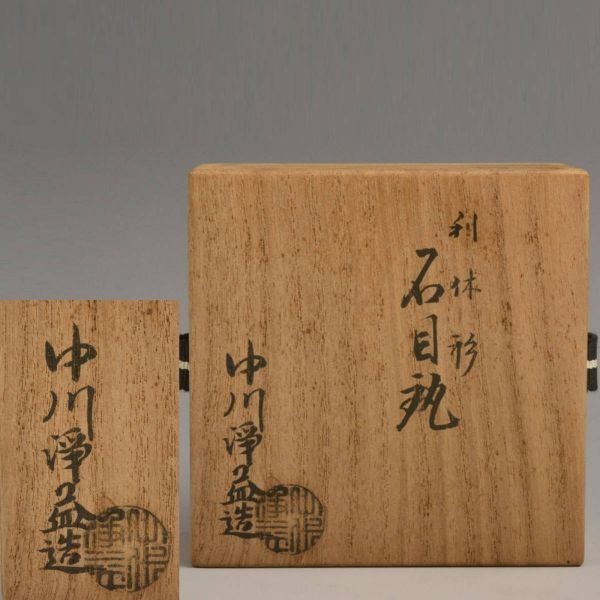 利休形
石目瓶
中川淨益造
中川淨益造